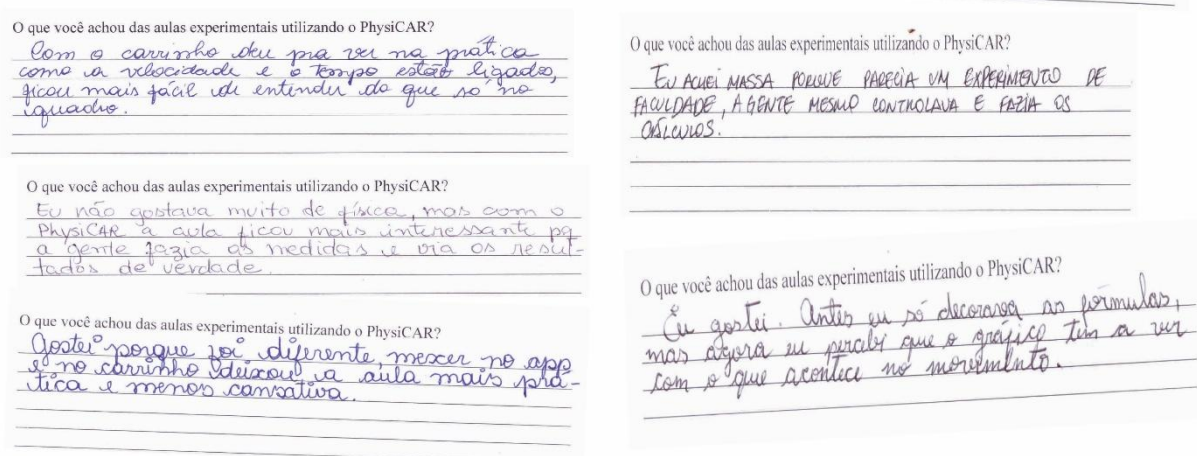 O que você achou das aulas experimentais utilizando o PhysiCAR?
Com o carrinho deu pra ver na prática
como a velocidade e o tempo estão ligados,
ficou mais fácil de entender do que só no
quadro.
O que você achou das aulas experimentais utilizando o PhysiCAR?
Eu não gostava muito de física, mas com o
PhysiCAR a aula ficou mais interessante pq
a gente fazia as medidas e via os resul-
tados de verdade.
O que você achou das aulas experimentais utilizando o PhysiCAR?
Gostei porque foi diferente, mexer no app
e no carrinho deixou a aula mais prá-
tica e menos cansativa.
O que você achou das aulas experimentais utilizando o PhysiCAR?
EU ACHEI MASSA PORQUE PARECIA UM EXPERIMENTO DE
FACULDADE, A GENTE MESMO CONTROLAVA E FAZIA OS
CÁLCULOS.
O que você achou das aulas experimentais utilizando o PhysiCAR?
Eu gostei. Antes eu só decorava as fórmulas,
mas agora eu percebi que o gráfico tem a ver
com o que acontece no movimento.